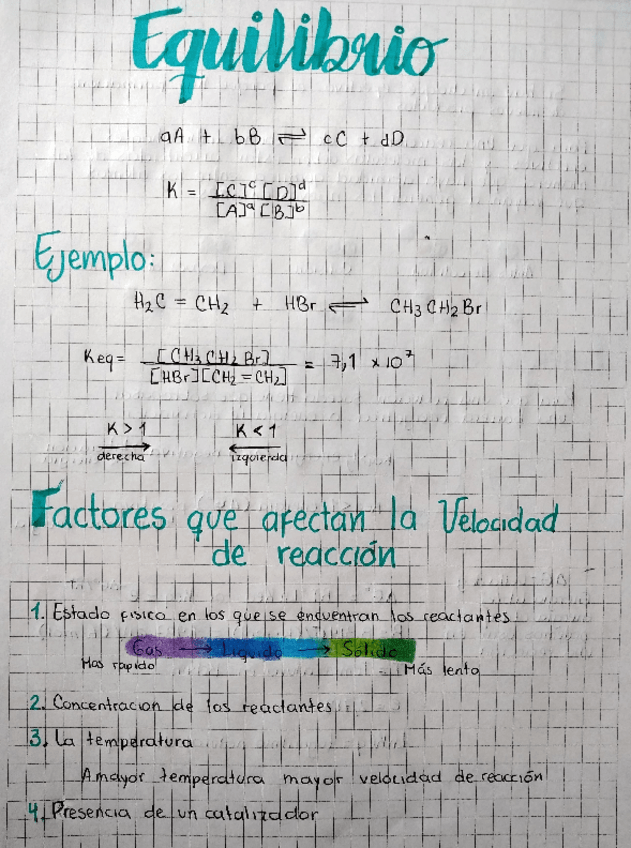 Equilibrio
aA + bB ⇌ cC + dD
K = [C]ᶜ [D]ᵈ
[A]ᵃ [B]ᵇ
Ejemplo:
H₂C = CH₂ + HBr ⇌ CH₃CH₂Br
Keq = [CH₃CH₂Br] = 7,1 × 10⁷
[HBr][CH₂=CH₂]
K > 1 K < 1
derecha izquierda
Factores que afectan la Velocidad
de reacción
1. Estado fisico en los que se encuentran los reactantes
Gas → Liquido → Sólido
Mas rapido Más lento
2. Concentracion de los reactantes
3. La temperatura
A mayor temperatura mayor velocidad de reacción
4. Presencia de un catalizador